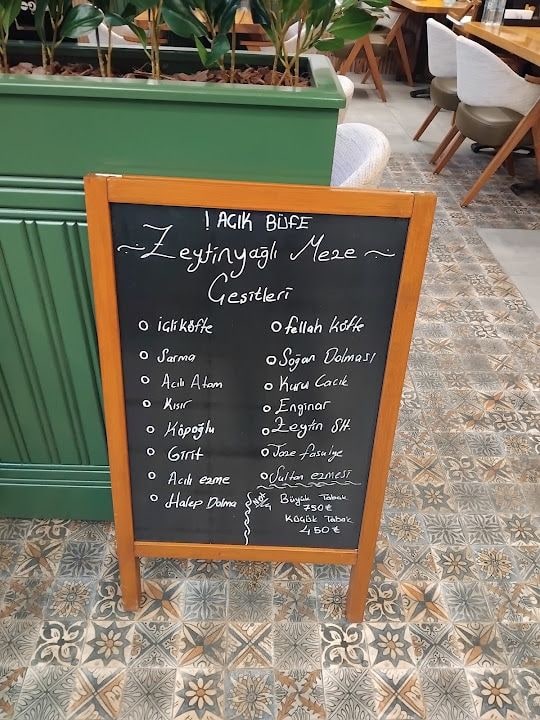 ! AÇIK BÜFE
Zeytinyağlı Meze
Çeşitleri
içli köfte
Sarma
Acılı Atom
Kısır
Köpoğlu
Girit
Acılı ezme
Halep Dolma
fellah köfte
Soğan Dolması
Kuru Cacık
Enginar
Zeytin Slt
Taze fasulye
Sultan ezmesi
Büyük Tabak
750₺
Küçük Tabak
450₺